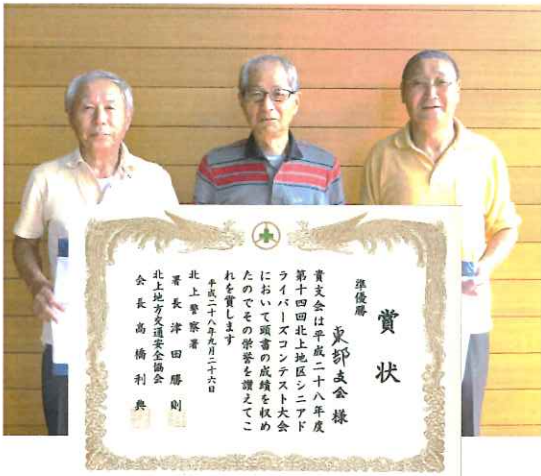 賞状
準優勝
東部支会様
貴支会は平成二十八年度
第十四回北上地区シニアド
ライバーズコンテスト大会
において頭書の成績を収め
たのでその栄誉を讃えてこ
れを賞します
平成二十八年九月二十六日
北上警察署
署長津田勝則
北上地方交通安全協会
会長高橋利典